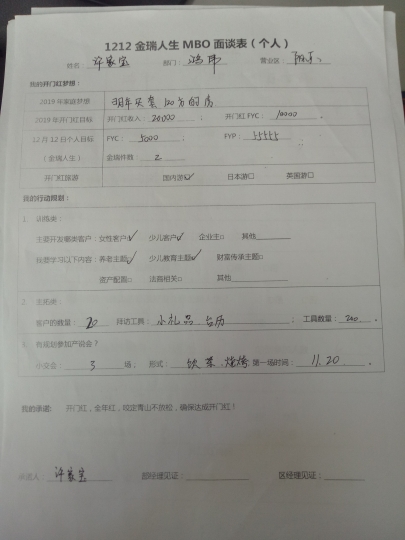 1212金瑞人生MBO面谈表（个人）
姓名：许家宝 部门：鸿 营业区：
我的开门红梦想：
2019年家庭梦想 明年买套120万的房
2019年开门红目标 开门红收入：20000； 开门红FYC：10000。
12月12日个人目标 FYC：5000 FYP：55555
（金瑞人生） 金瑞件数 2
开门红旅游 国内游☑ 日本游□ 英国游□
我的行动规划：
1. 训练类：
主要开发哪类客户：女性客户☑ 少儿客户☑ 企业主□ 其他
我要学习以下内容：养老主题☑ 少儿教育主题☑ 财富传承主题□
资产配置□ 法商相关□ 其他
2. 主拓类：
客户的数量：20 拜访工具：小礼品 台历； 工具数量：200。
有规划参加产说会？
小交会：3场； 形式：饮茶、烧烤 第一场时间：11.20。
我的承诺： 开门红，全年红，咬定青山不放松，确保达成开门红！
承诺人：许家宝 部经理见证： 区经理见证：